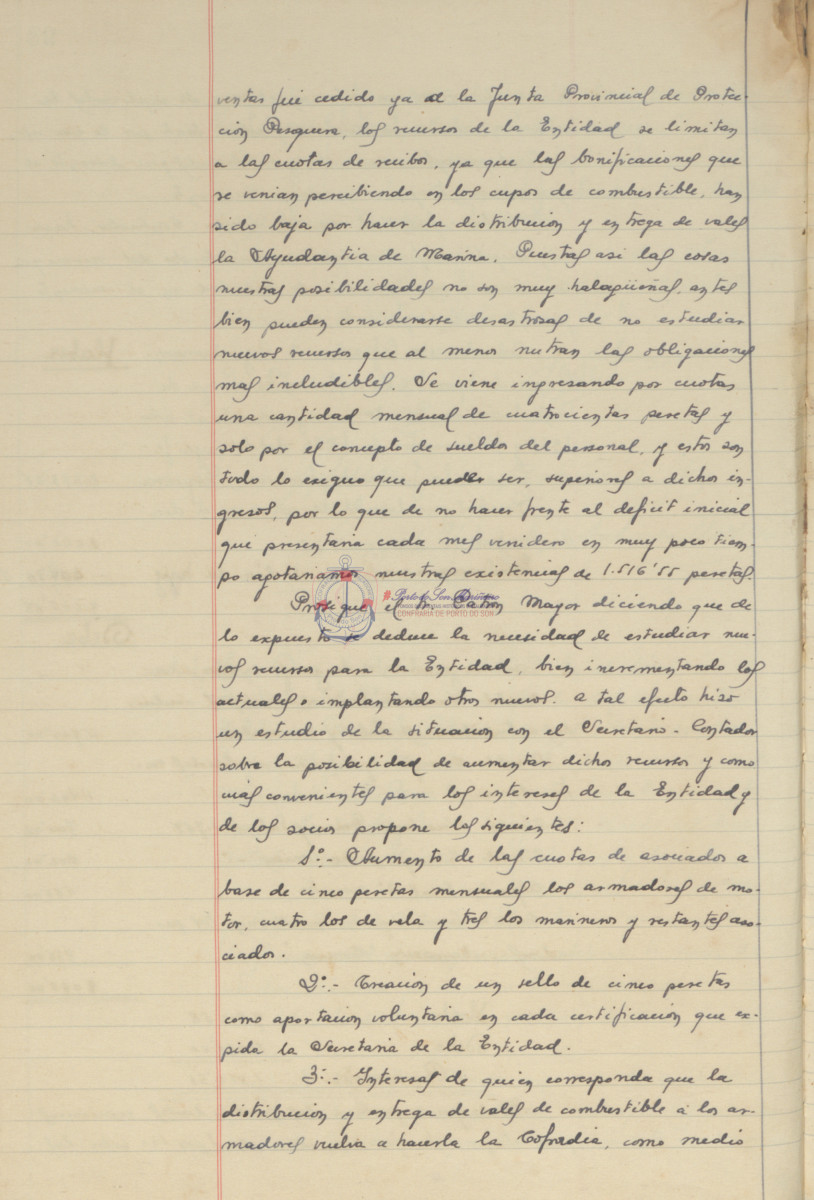 ventas fué cedido ya a la Junta Provincial de Protec-
ción Pesquera, los recursos de la Entidad se limitan
a las cuotas de recibos, ya que las bonificaciones que
se venian percibiendo en los cupos de combustible, han
sido baja por hacer la distribución y entrega de vales
la Ayudantia de Marina. Puestas asi las cosas
nuestras posibilidades no son muy halagüeñas, antes
bien pueden considerarse desastrosas de no estudiar
nuevos recursos que al menos nutran las obligaciones
mas ineludibles. Se viene ingresando por cuotas
una cantidad mensual de cuatrocientas pesetas y
solo por el concepto de sueldos del personal, y estos son
todo lo exiguo que pueden ser, superiores a dichos in-
gresos, por lo que de no hacer frente al deficit inicial
que presentaria cada mes venidero en muy poco tiem-
po agotariamos nuestras existencias de 1.516'55 pesetas.
Prosigue el Sr. Patrón Mayor diciendo que de
CONFRARIA DE PORTO DO SON
lo expuesto se deduce la necesidad de estudiar nue-
vos recursos para la Entidad, bien incrementando los
actuales o implantando otros nuevos. a tal efecto hizo
un estudio de la situación con el Secretario-Contador
sobre la posibilidad de aumentar dichos recursos y como
más convenientes para los intereses de la Entidad y
de los socios propone los siguientes:
1º.- Aumento de las cuotas de asociados a
base de cinco pesetas mensuales los armadores de mo-
tor, cuatro los de vela y tres los marineros y restantes aso-
ciados.
2º.- Creación de un sello de cinco pesetas
como aportación voluntaria en cada certificación que ex-
pida la Secretaria de la Entidad.
3º.- Interesar de quien corresponda que la
distribución y entrega de vales de combustible a los ar-
madores vuelva a hacerla la Cofradia, como medio